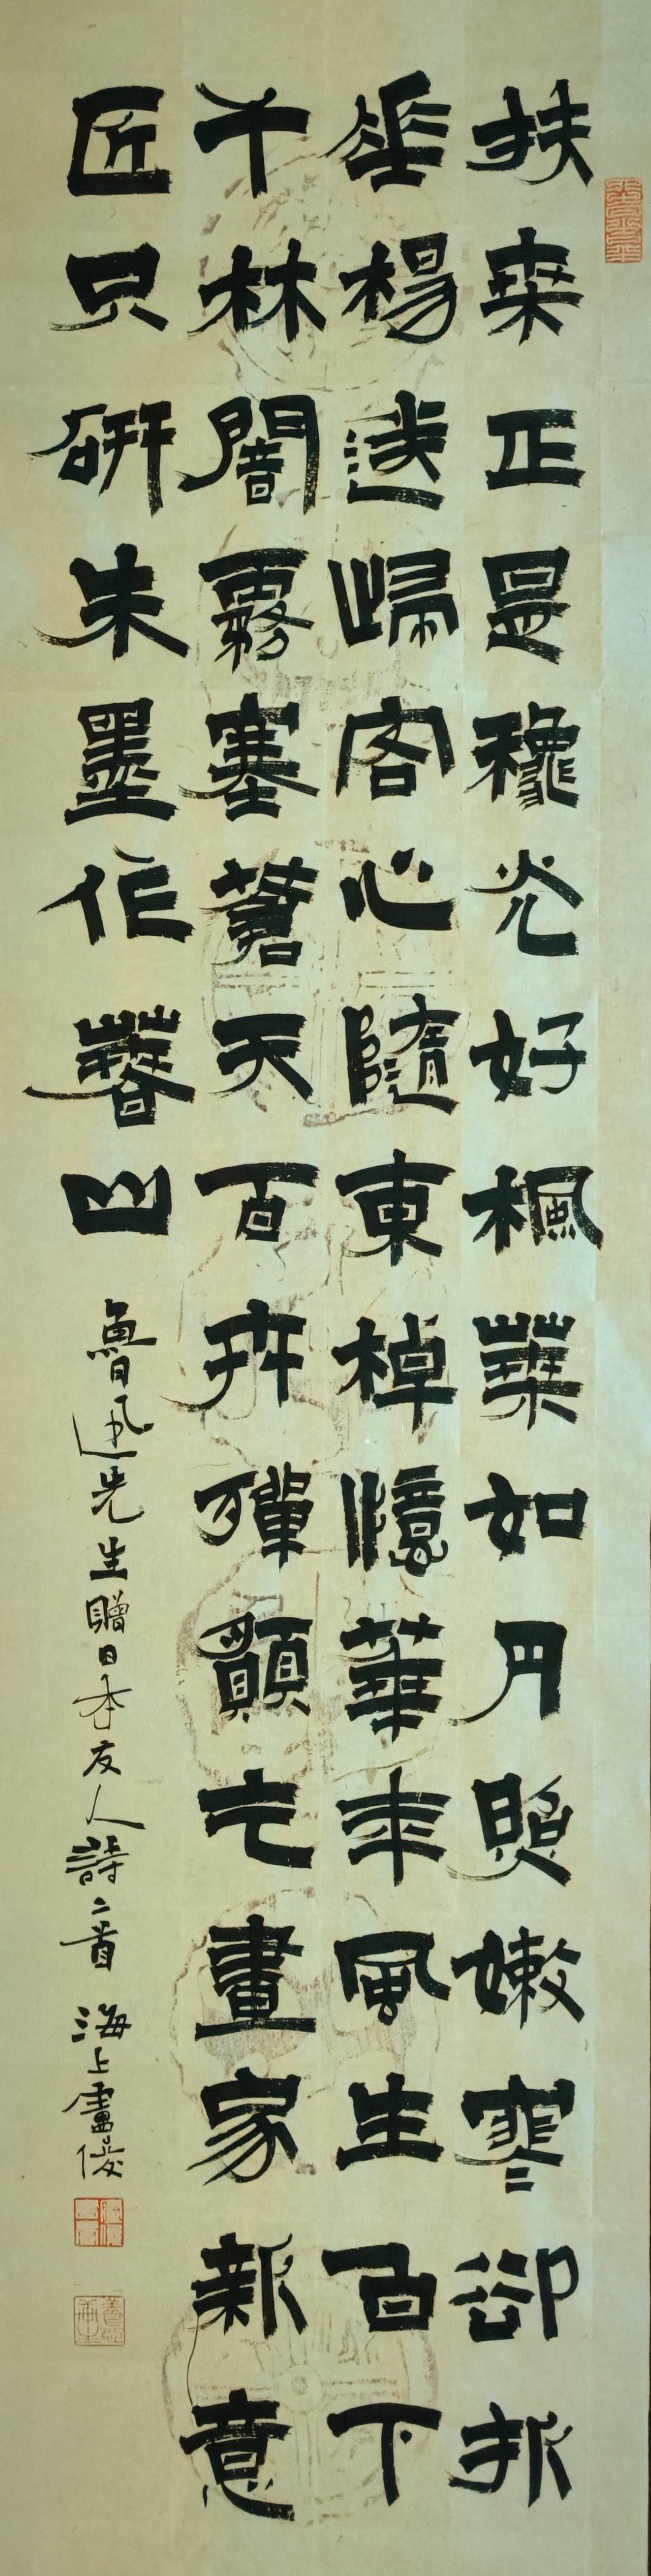 扶桒正是穐光好楓葉如丹照嫩寒卻折
垂楊送歸客心隨東棹憶華年風生百下
千林闇霧塞蒼天百卉殫顠乞畫家新意
匠只研朱墨作萅山 魯迅先生贈日本友人詩二首 海上盧俊